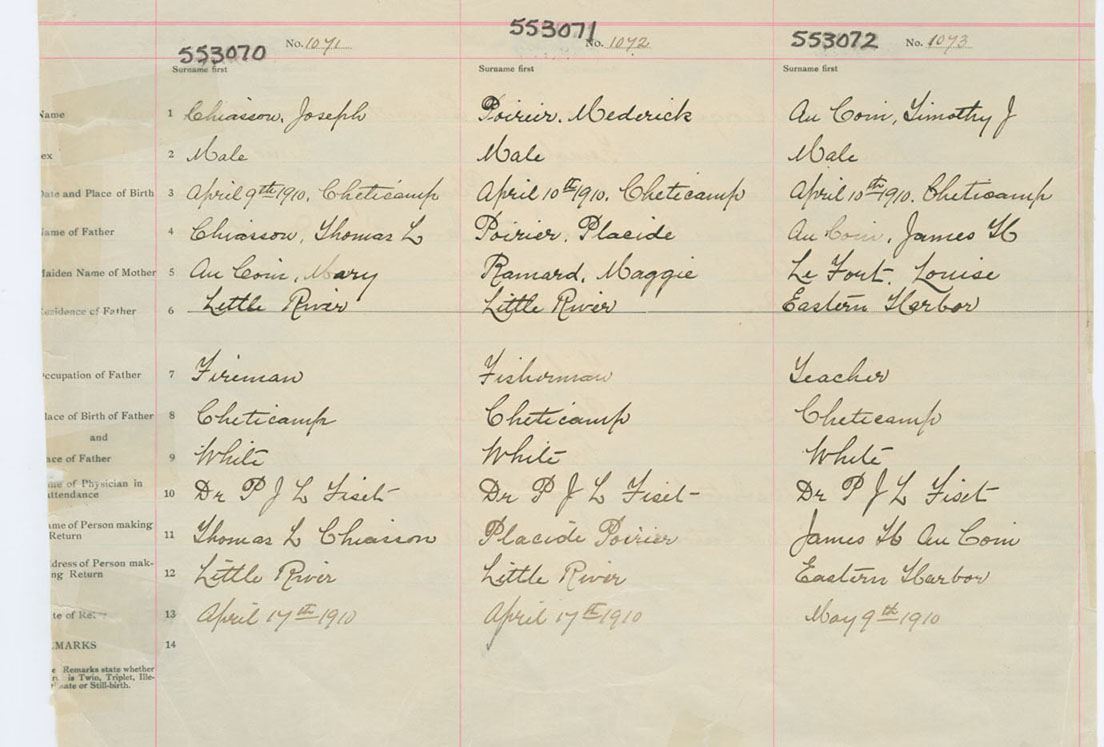 553070 No. 1071 553071 No. 1072 553072 No. 1073
Surname first Surname first Surname first
Name 1 Chiasson, Joseph Poirier. Mederick Au Coin, Timothy J
ex 2 Male Male Male
Date and Place of Birth 3 April 9th 1910, Cheticamp April 10th 1910. Cheticamp April 10th 1910. Cheticamp
Name of Father 4 Chiasson, Thomas L Poirier. Placide Au Coin, James H
Maiden Name of Mother 5 Au Coin, Mary Ramard, Maggie Le Fort. Louise
Residence of Father 6 Little River Little River Eastern Harbor
Occupation of Father 7 Fireman Fisherman Teacher
lace of Birth of Father 8 Cheticamp Cheticamp Cheticamp
and
ace of Father 9 White White White
me of Physician in
attendance 10 Dr P J L Fiset Dr P J L Fiset Dr P J L Fiset
ame of Person making
Return 11 Thomas L Chiasson Placide Poirier James H Au Coin
dress of Person mak-
ng Return 12 Little River Little River Eastern Harbor
te of 13 April 17th 1910 April 17th 1910 May 9th 1910
EMARKS 14
e Remarks state whether
is Twin, Triplet, Ille-
ate or Still-birth.